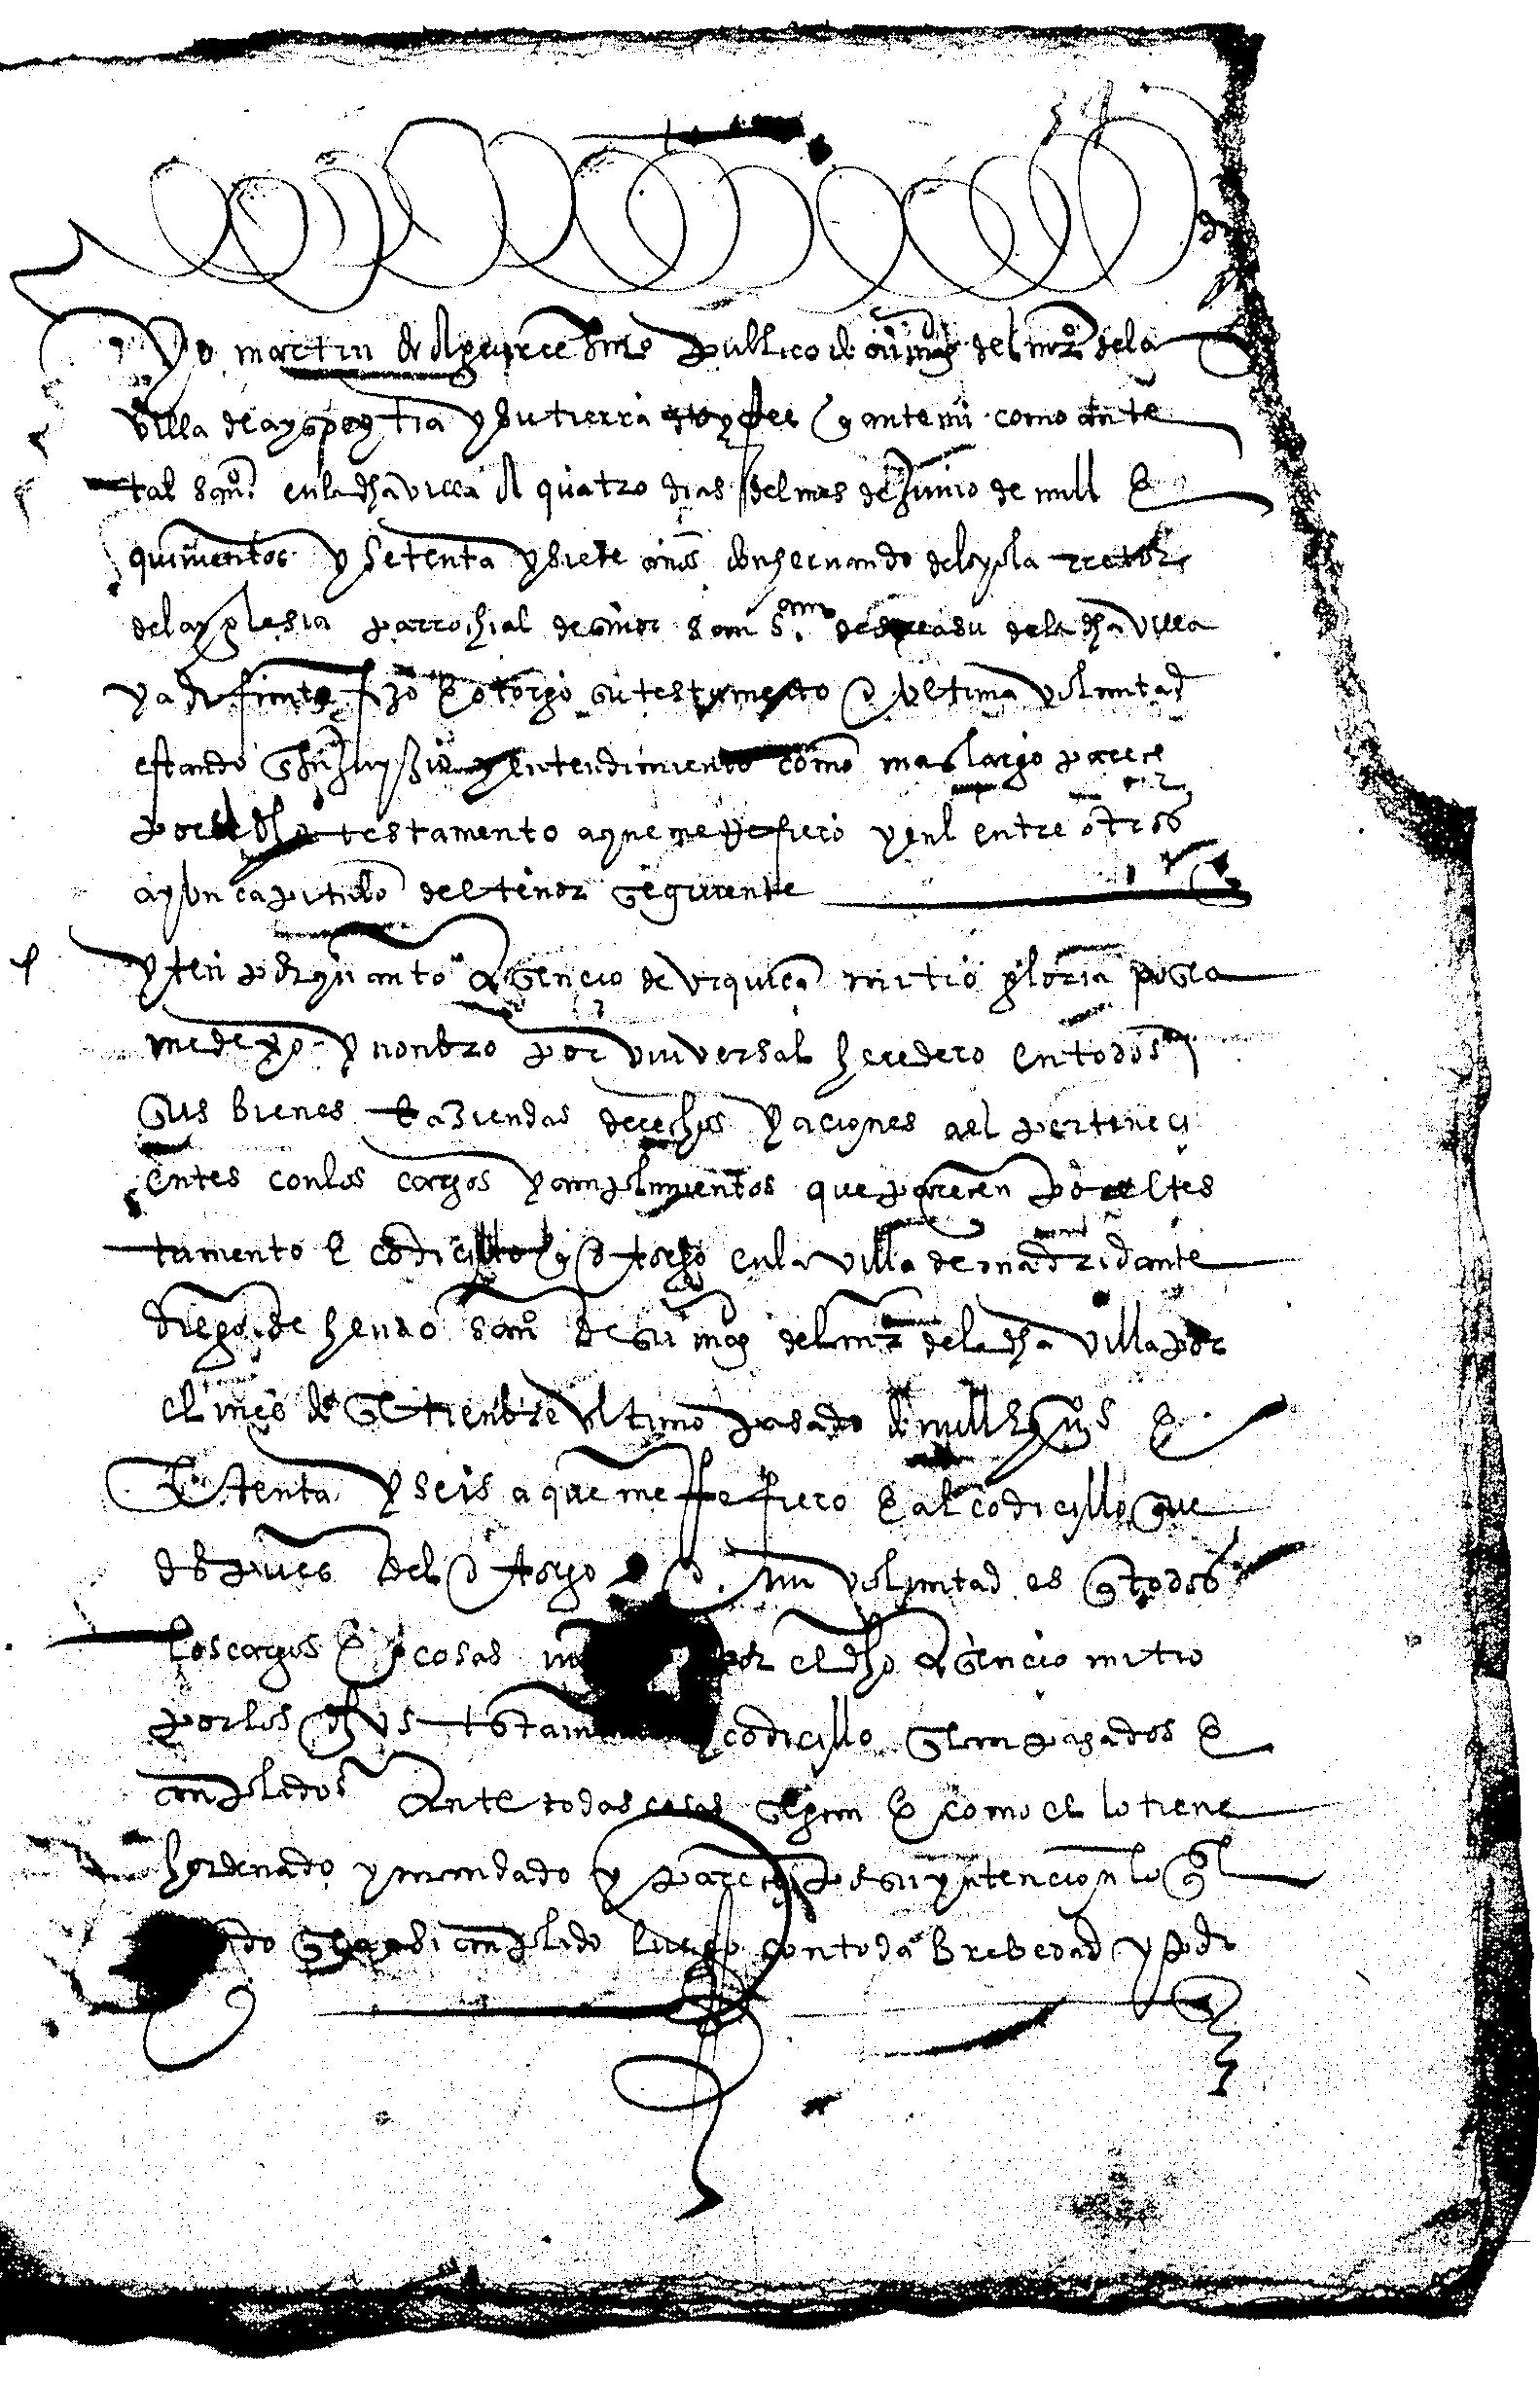 Yo martin de scrivano publico de su mag del nuº dela
villa de ayzpeytia y su tierra doy fee q ante mi como ante
tal scriº en la dha villa a quatro dias del mes de junio de mill e
quinientos y setenta y siete años don hernando de loyola rretor
dela yglesia parrochial de señor san s. an de dela dha villa
ya difunto fizo e otorgo su testamento e ultima voluntad
estando en su juyzio y entendimiento como mas largo parece
por el dho testamento a que me rrefiero y en el entre otros
ay un capitulo del tenor seguiente
yten por quanto asencio de urquiça mi tio gloria posea
me dexo y nonbro por universal heredero en todos
sus bienes e aziendas derechos y aciones a el perteneci
entes con los cargos y cunplimientos que parecen por el tes
tamento e codicillo q otorgo en la villa de madrid ante
diego de henao scriº de su mag del nuº dela dha villa por
el mes de setienbre ultimo pasado de mill e qºs e
setenta y seis a que me rrefiero e al codicillo que
despues del otorgo mi voluntad es q todos
los cargos e cosas por el dho asencio mi tio
por los dhos testam codicillo sean pagados e
cunplidos ante todas cosas segun e como el lo tiene
hordenado y mandado y parece por su yntencion lo ql
do sea asi cunplido luego con toda brebedad y por